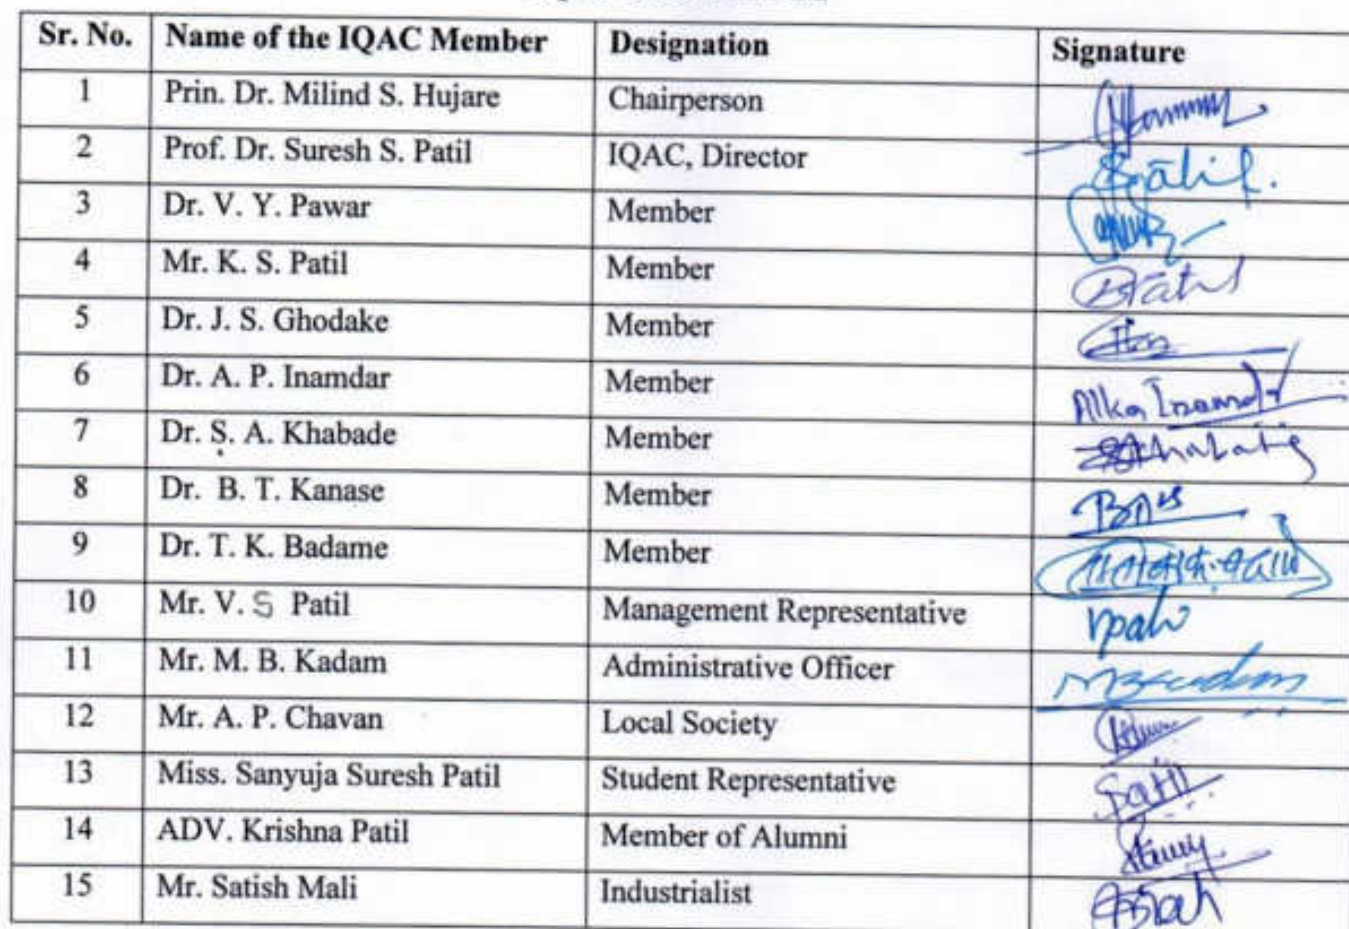 Sr. No. Name of the IQAC Member Designation Signature
1 Prin. Dr. Milind S. Hujare Chairperson
2 Prof. Dr. Suresh S. Patil IQAC, Director
3 Dr. V. Y. Pawar Member
4 Mr. K. S. Patil Member
5 Dr. J. S. Ghodake Member
6 Dr. A. P. Inamdar Member Alka Inamdar
7 Dr. S. A. Khabade Member
8 Dr. B. T. Kanase Member
9 Dr. T. K. Badame Member
10 Mr. V. S Patil Management Representative
11 Mr. M. B. Kadam Administrative Officer
12 Mr. A. P. Chavan Local Society
13 Miss. Sanyuja Suresh Patil Student Representative
14 ADV. Krishna Patil Member of Alumni
15 Mr. Satish Mali Industrialist